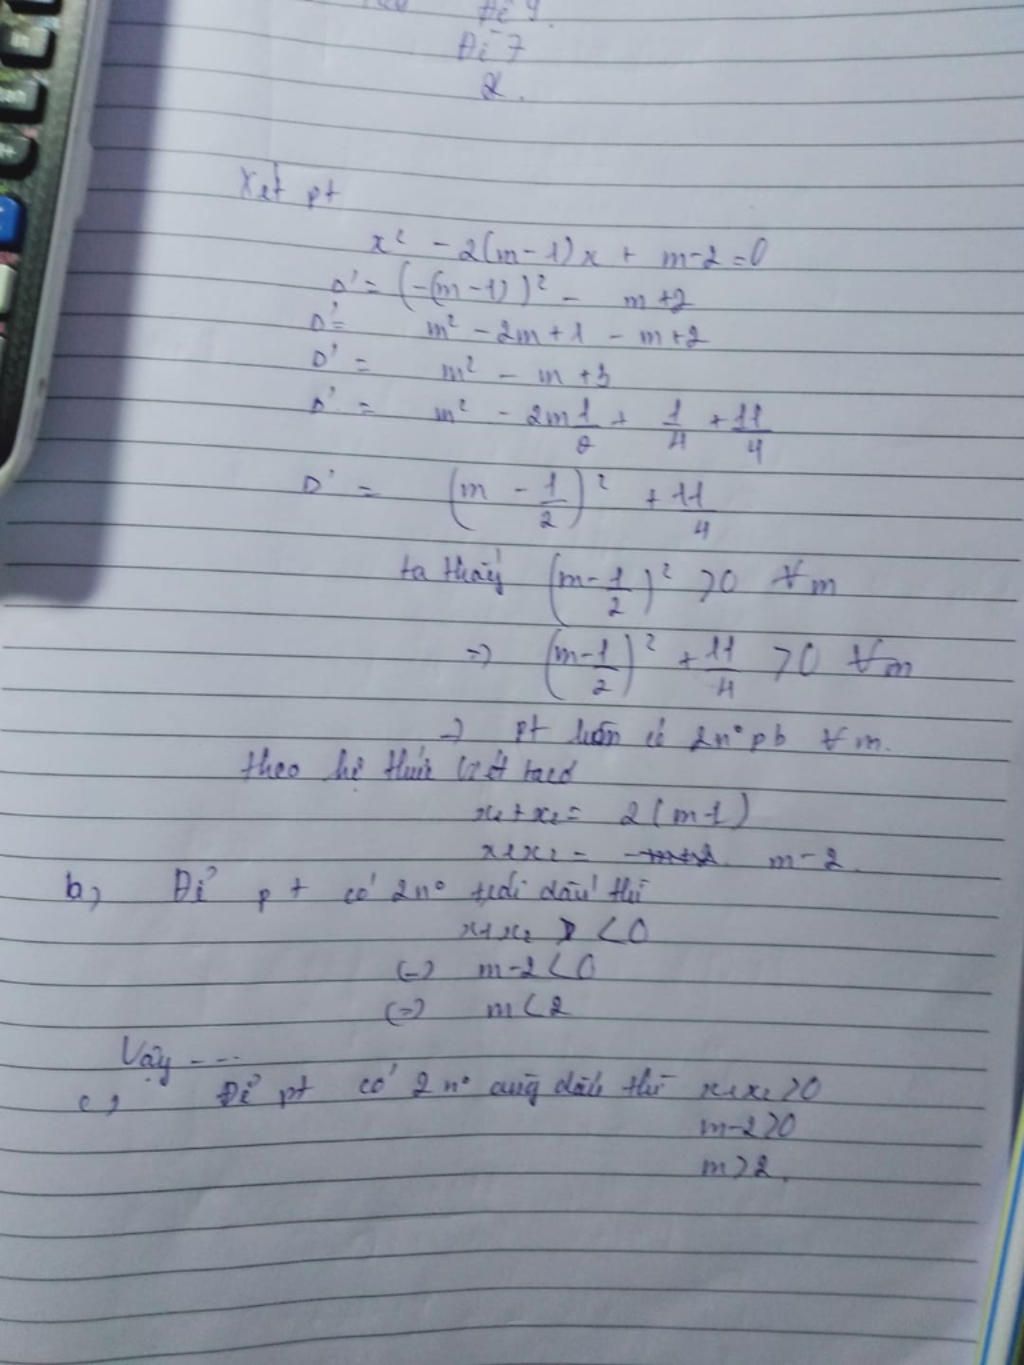 Đề 9.
Đề 7
2.
Xét pt
x² - 2(m-1)x + m-2 = 0
Δ' = (-(m-1))² - m+2
Δ' = m² - 2m+1 - m+2
Δ' = m² - m + 3
Δ' = m² - 2m 1/2 + 1/4 + 11/4
Δ' = (m - 1/2)² + 11/4
ta thấy (m - 1/2)² > 0 ∀m
=> (m - 1/2)² + 11/4 > 0 ∀m
=> pt luôn có 2n° pb ∀m.
theo hệ thức Viét
x₁ + x₂ = 2(m-1)
x₁x₂ = m-2
b, Để pt có 2n° trái dấu thì
x₁x₂ < 0
(=) m-2 < 0
(=) m < 2
Vậy ---
c, Để pt có 2n° cùng dấu thì x₁x₂ > 0
m-2 > 0
m > 2.